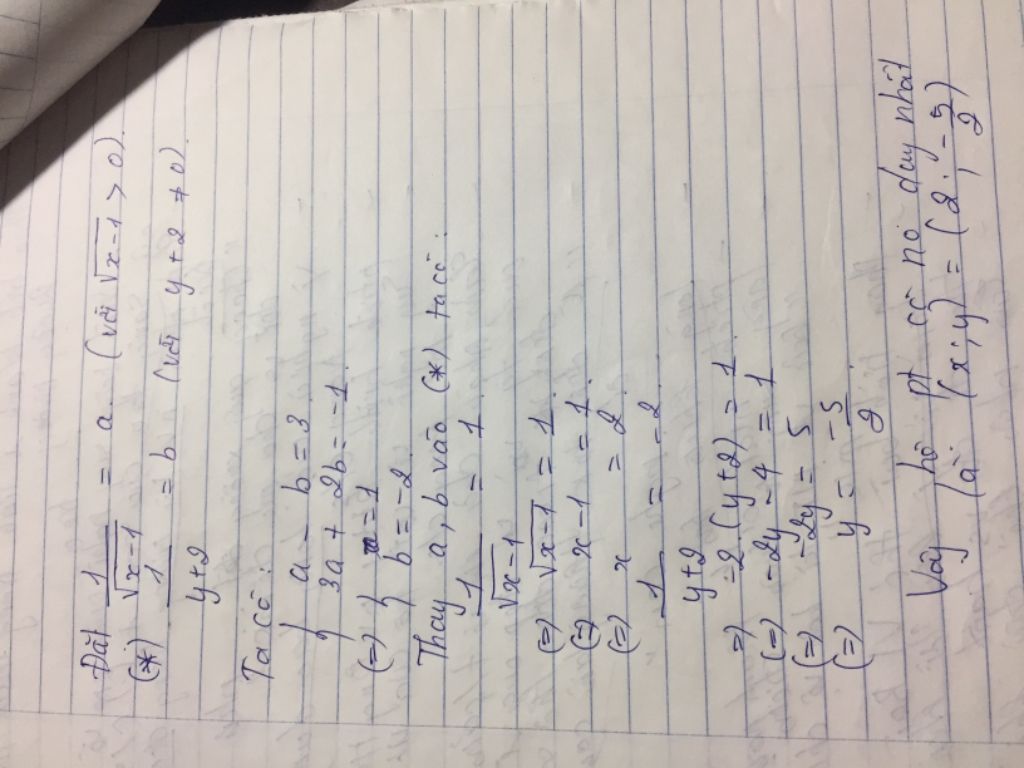 Đặt 1/√(x-1) = a (với √(x-1) > 0)
(*) 1/(y+2) = b (với y+2 ≠ 0)
Ta có:
{ a - b = 3
3a + 2b = -1
(=) { a = 1
b = -2
Thay a, b vào (*) ta có:
1/√(x-1) = 1
(=) √(x-1) = 1
(=) x-1 = 1
(=) x = 2
1/(y+2) = -2
=) -2(y+2) = 1
(=) -2y - 4 = 1
(=) -2y = 5
(=) y = -5/2
Vậy hệ pt có nő duy nhất
là (x;y) = (2; -5/2)